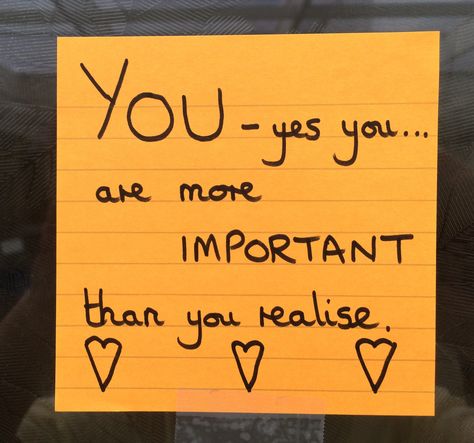 YOU - yes you...
are more
IMPORTANT
than you realise.